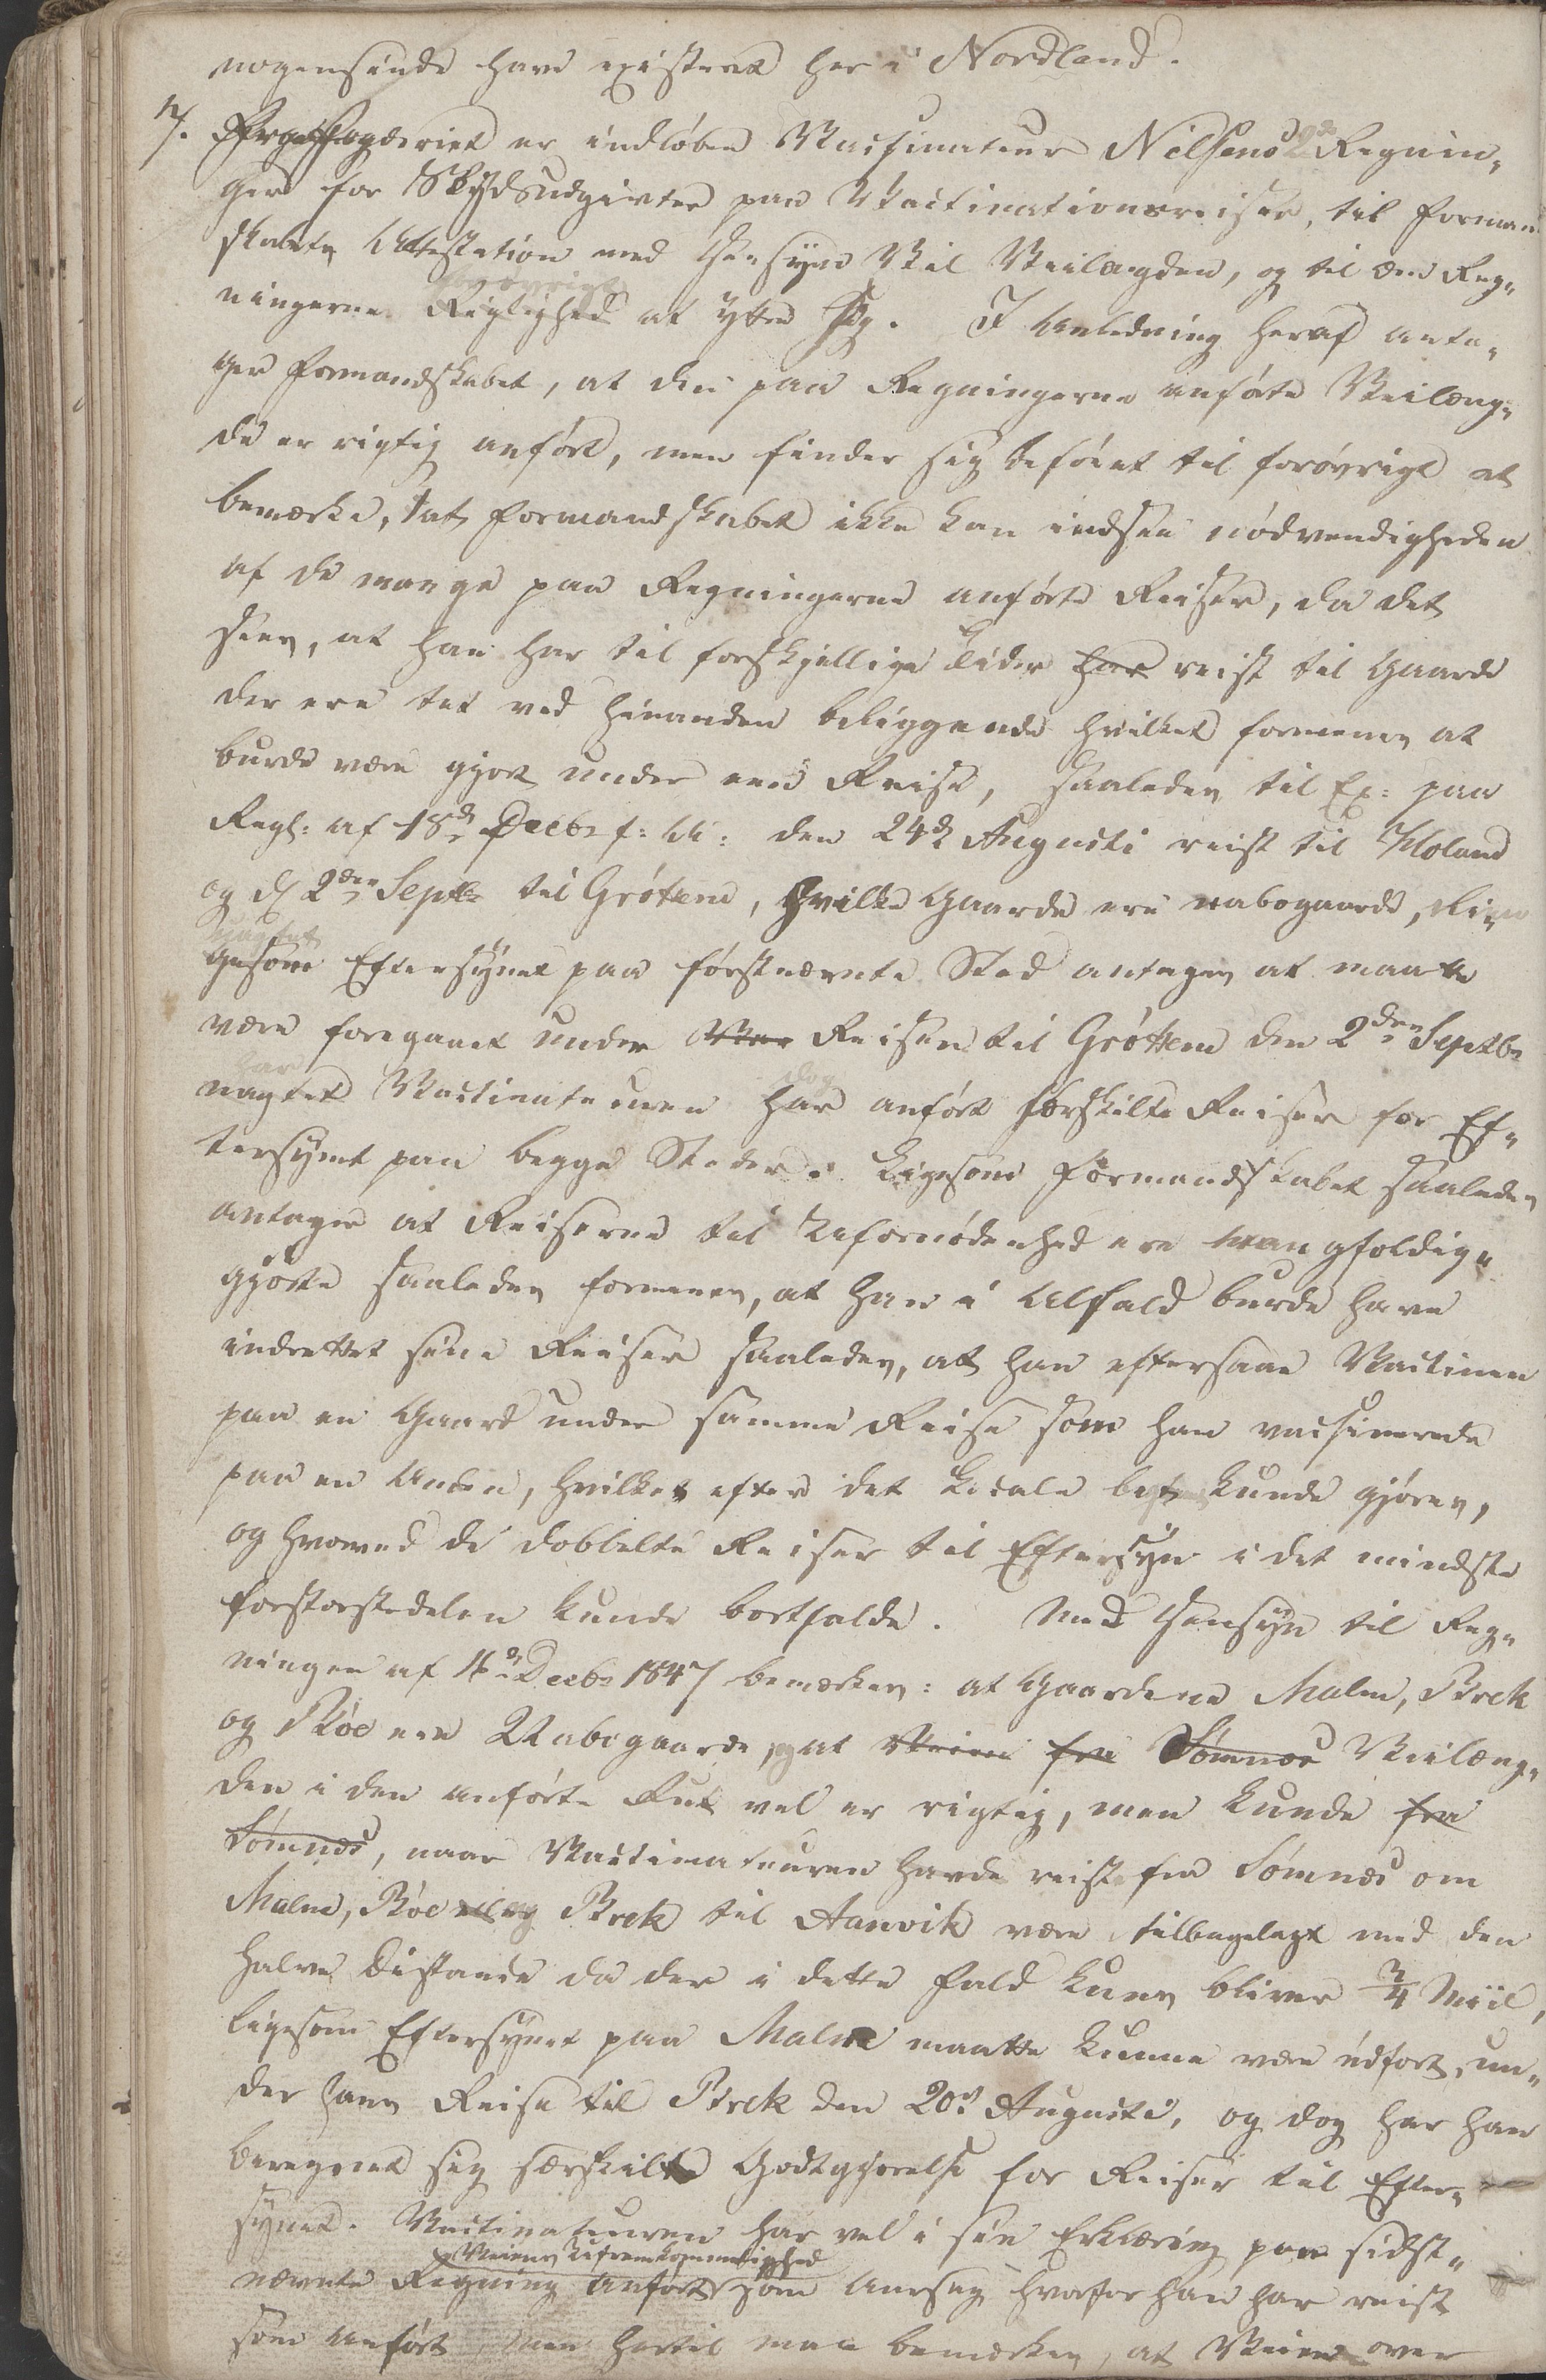 nogensinde have existeret her i Nordland.
7. Fra Fogderiet er indløben Vaccinateur Nilsens 2de Regnin„
ger for Skydsudgivter paa Vaccinationsreiser, til Forman„
skabets Attestation med Hensyn til Veilængden, og til om Reg„
ningernes Rigtighed forøvrigt at yttre sig. I Anledning heraf anta„
ger Formandskabet, at den paa Regningerne anførte Veilæng„
de er rigtig anført, men finder sig beføiet til forøvrigt at
bemærke, at Formandskabet ikke kan indsee nødvendigheden
af de mange paa Regningerne anførte Reiser, da det
sees, at han har til forskjellige Tider har reist til Gaarde
der ere tæt ved hinanden beliggende hvilket formenes at
burde være gjort under een Reise, saaledes til Ex: paa
Regn: af 18de Decbr f: A: den 24de Augusti reist til Moland
og d. 2den Septbr til Grøtem, hvilke Gaarde ere nabogaarde, li„
gesom Eftersynet paa førstnævnte Sted antages at maatte
være foregaaet under Reisen til Grøttem den 2den Septbr
uagtet Vaccinateuren har dog anført særskilte Reiser for Ef„
tersynet paa begge Steder. Ligesom Formandskabet saaledes
antager at Reiserne til Ufornødenhed ere mangfoldig„
gjorte saaledes formenes, at han i Alfald burde have
indrettet sine Reiser saaledes, at han eftersaae Vaccinen
paa en Gaard under samme Reise som han vaccinerede
paa en Anden, hvilket efter det Locale best kunde gjøres,
og hvorved de dobbelte Reiser til Eftersyn i det mindste
forstørstedelen kunde bortfalde. Med Hensyn til Reg„
ningen af 4de Decbr 1847 bemærkes: at Gaardene Malm, Brek
og Bøe ere Nabogaarde, og at Veien fra Sømnes Veilæng„
den i den anførte Rut vel er rigtig, men kunde fra
Sømnes, naar Vaccinateuren havde reist fra Sømnes om
Malm, Bøe og Brek til Aanvik være tilbagelagt med den
halve Distance da der i dette Fald kuns bliver 3/4 Miil,
ligesom Eftersynet paa Malm maatte kunne være udført un„
der hans Reise til Brek den 20de Augusti, og dog har han
beregnet sig særskilte Godtgjørelse for Reiser til Efter„
synet. Vaccinateuren har vel i sin Erklæring paa sidst„
nævnte Regning anført Veiens Ufremkommelighed som Aarsag hvorfor han har reist
som anført, men hertil maa bemærkes, at Veien over